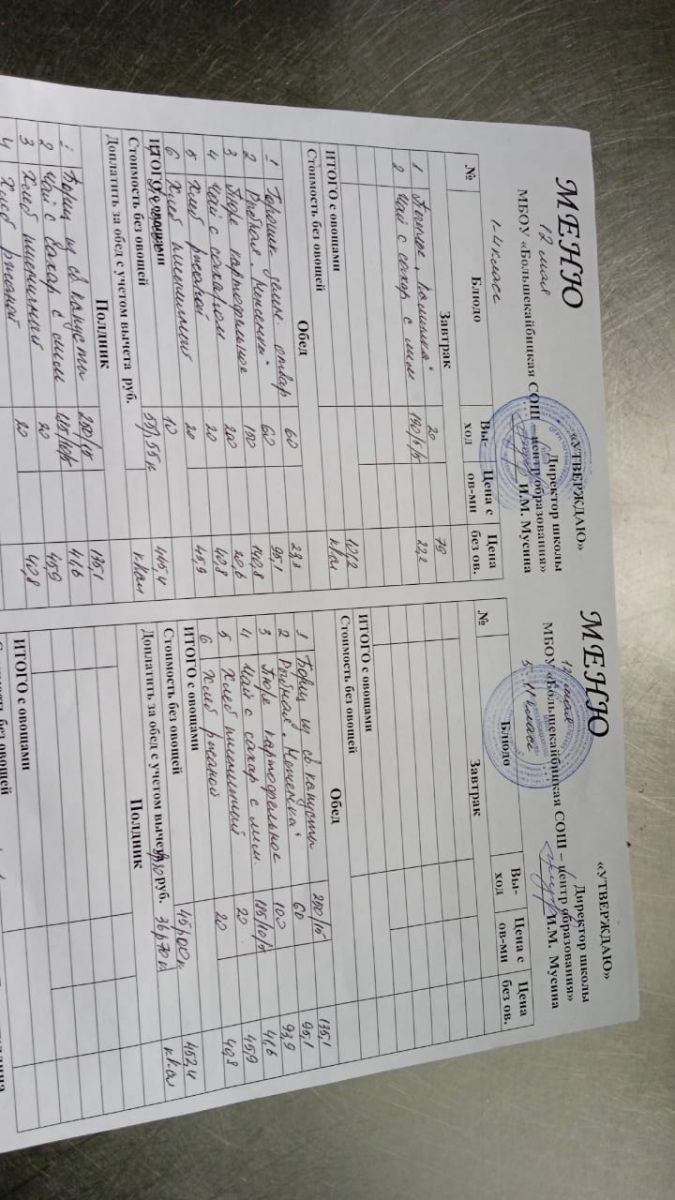 МЕНЮ
«УТВЕРЖДАЮ»
Директор школы
МБОУ «Большекайбицкая СОШ – центр образования»
12 мая И.М. Мусина
1-4 класс
№ Блюдо Вы-ход Цена с ов-ми Цена без ов.
Завтрак
1 20 79
2 Чай с сахар с лим 180/5/5 22,2
ИТОГО с овощами 101,2
Стоимость без овощей ккал
Обед
1 Горошек зелен. отвар 60 23,3
2 60 95,1
3 Пюре картофельное 150 140,8
4 Чай с сахаром 200 20,6
5 Хлеб ржаной 20 40,8
6 Хлеб пшеничный 20 45,9
ИТОГО с овощами 10
Стоимость без овощей 445,4
Доплатить за обед с учетом вычета руб. ккал
Полдник
1 Борщ из св капусты 250/15 135,1
2 Чай с сахар с лим 41,6
3 Хлеб пшеничный 20 45,9
4 Хлеб ржаной 20 40,8
МЕНЮ
«УТВЕРЖДАЮ»
Директор школы
МБОУ «Большекайбицкая СОШ – центр образования»
12 мая И.М. Мусина
5-11 класс
№ Блюдо Вы-ход Цена с ов-ми Цена без ов.
Завтрак
ИТОГО с овощами
Стоимость без овощей
Обед
1 Борщ из св капусты 250/15 135,1
2 60 95,1
3 Пюре картофельное 100 93,9
4 Чай с сахар с лим. 41,6
5 Хлеб пшеничный 20 45,9
6 Хлеб ржаной 20 40,8
ИТОГО с овощами
Стоимость без овощей 452,4
Доплатить за обед с учетом вычета руб. ккал
Полдник
ИТОГО с овощами